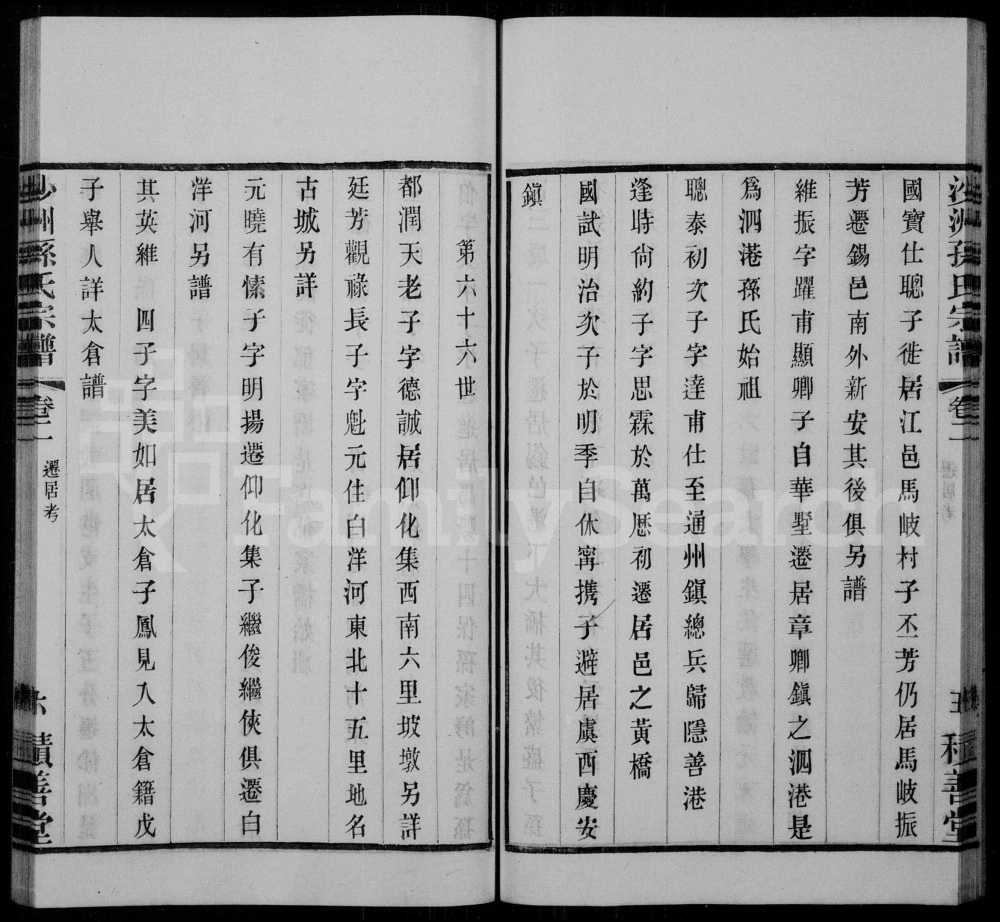 沙洲孫氏宗譜 卷二 遷居考 五 積善堂
國寶仕聰子徙居江邑馬岐村子丕芳仍居馬岐振
芳遷錫邑南外新安其後俱另譜
維振字躍甫顯卿子自華墅遷居章卿鎮之泗港是
為泗港孫氏始祖
聰泰初次子字達甫仕至通州鎮總兵歸隱善港
逢時尚約子字思霖於萬厯初遷居邑之黃橋
國試明治次子於明季自休寧携子避居虞西慶安
鎮
第六十六世
都潤天老子字德誠居仰化集西南六里坡墩另詳
廷芳觀祿長子字魁元住白洋河東北十五里地名
古城另詳
元曉有愫子字明揚遷仰化集子繼俊繼俠俱遷白
洋河另譜
其英維四子字美如居太倉子鳳見入太倉籍戊
子舉人詳太倉譜
沙洲孫氏宗譜 卷二 遷居考 六 積善堂
FamilySearch